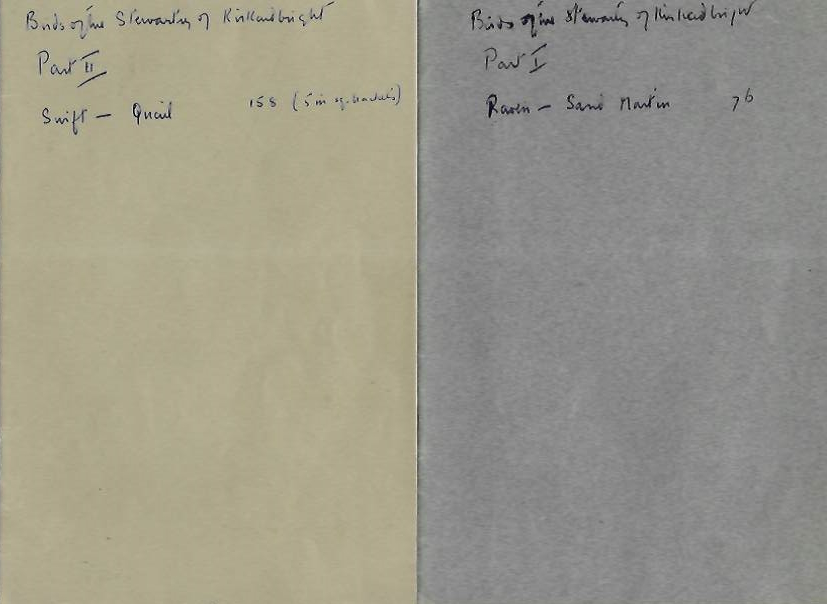 Birds of the Stewartry of Kirkcudbright
Part II
Swift – Quail 158 (5 in sq. brackets)
Birds of the Stewartry of Kirkcudbright
Part I
Raven – Sand Martin 76